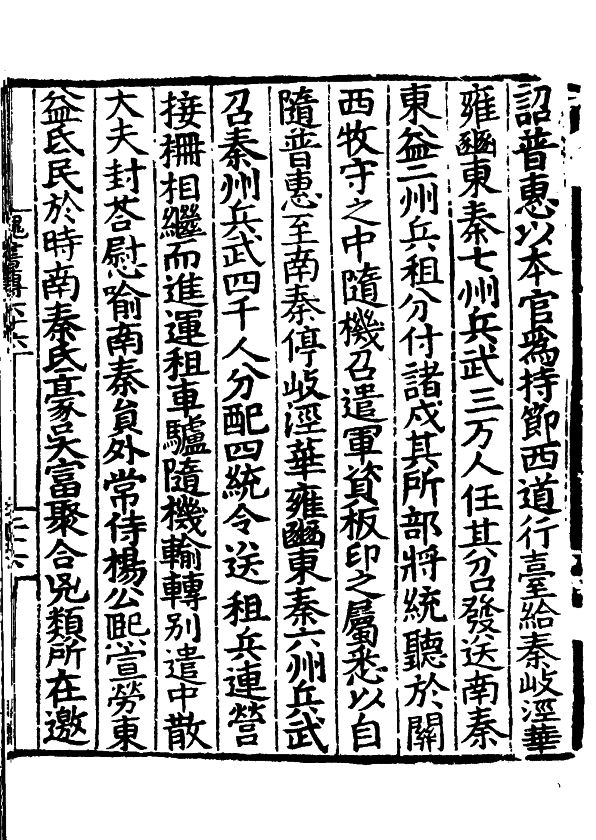 詔普惠以本官爲持節西道行臺給秦岐涇華
雍豳東秦七州兵武三万人任其分召發送南秦
東益二州兵租分付諸戍其所部將統聽於關
西牧守之中隨機召遣軍資板印之屬悉以自
隨普惠至南秦停岐涇華雍豳東秦六州兵武
召秦州兵武四千人分配四統令送租兵連營
接柵相繼而進運租車驢隨機輸轉別遣中散
大夫封荅慰喻南秦員外常侍楊公熙宣勞東
益氐民於時南秦氐豪吳富聚合兇類所在邀
魏書傳六十六
二十六